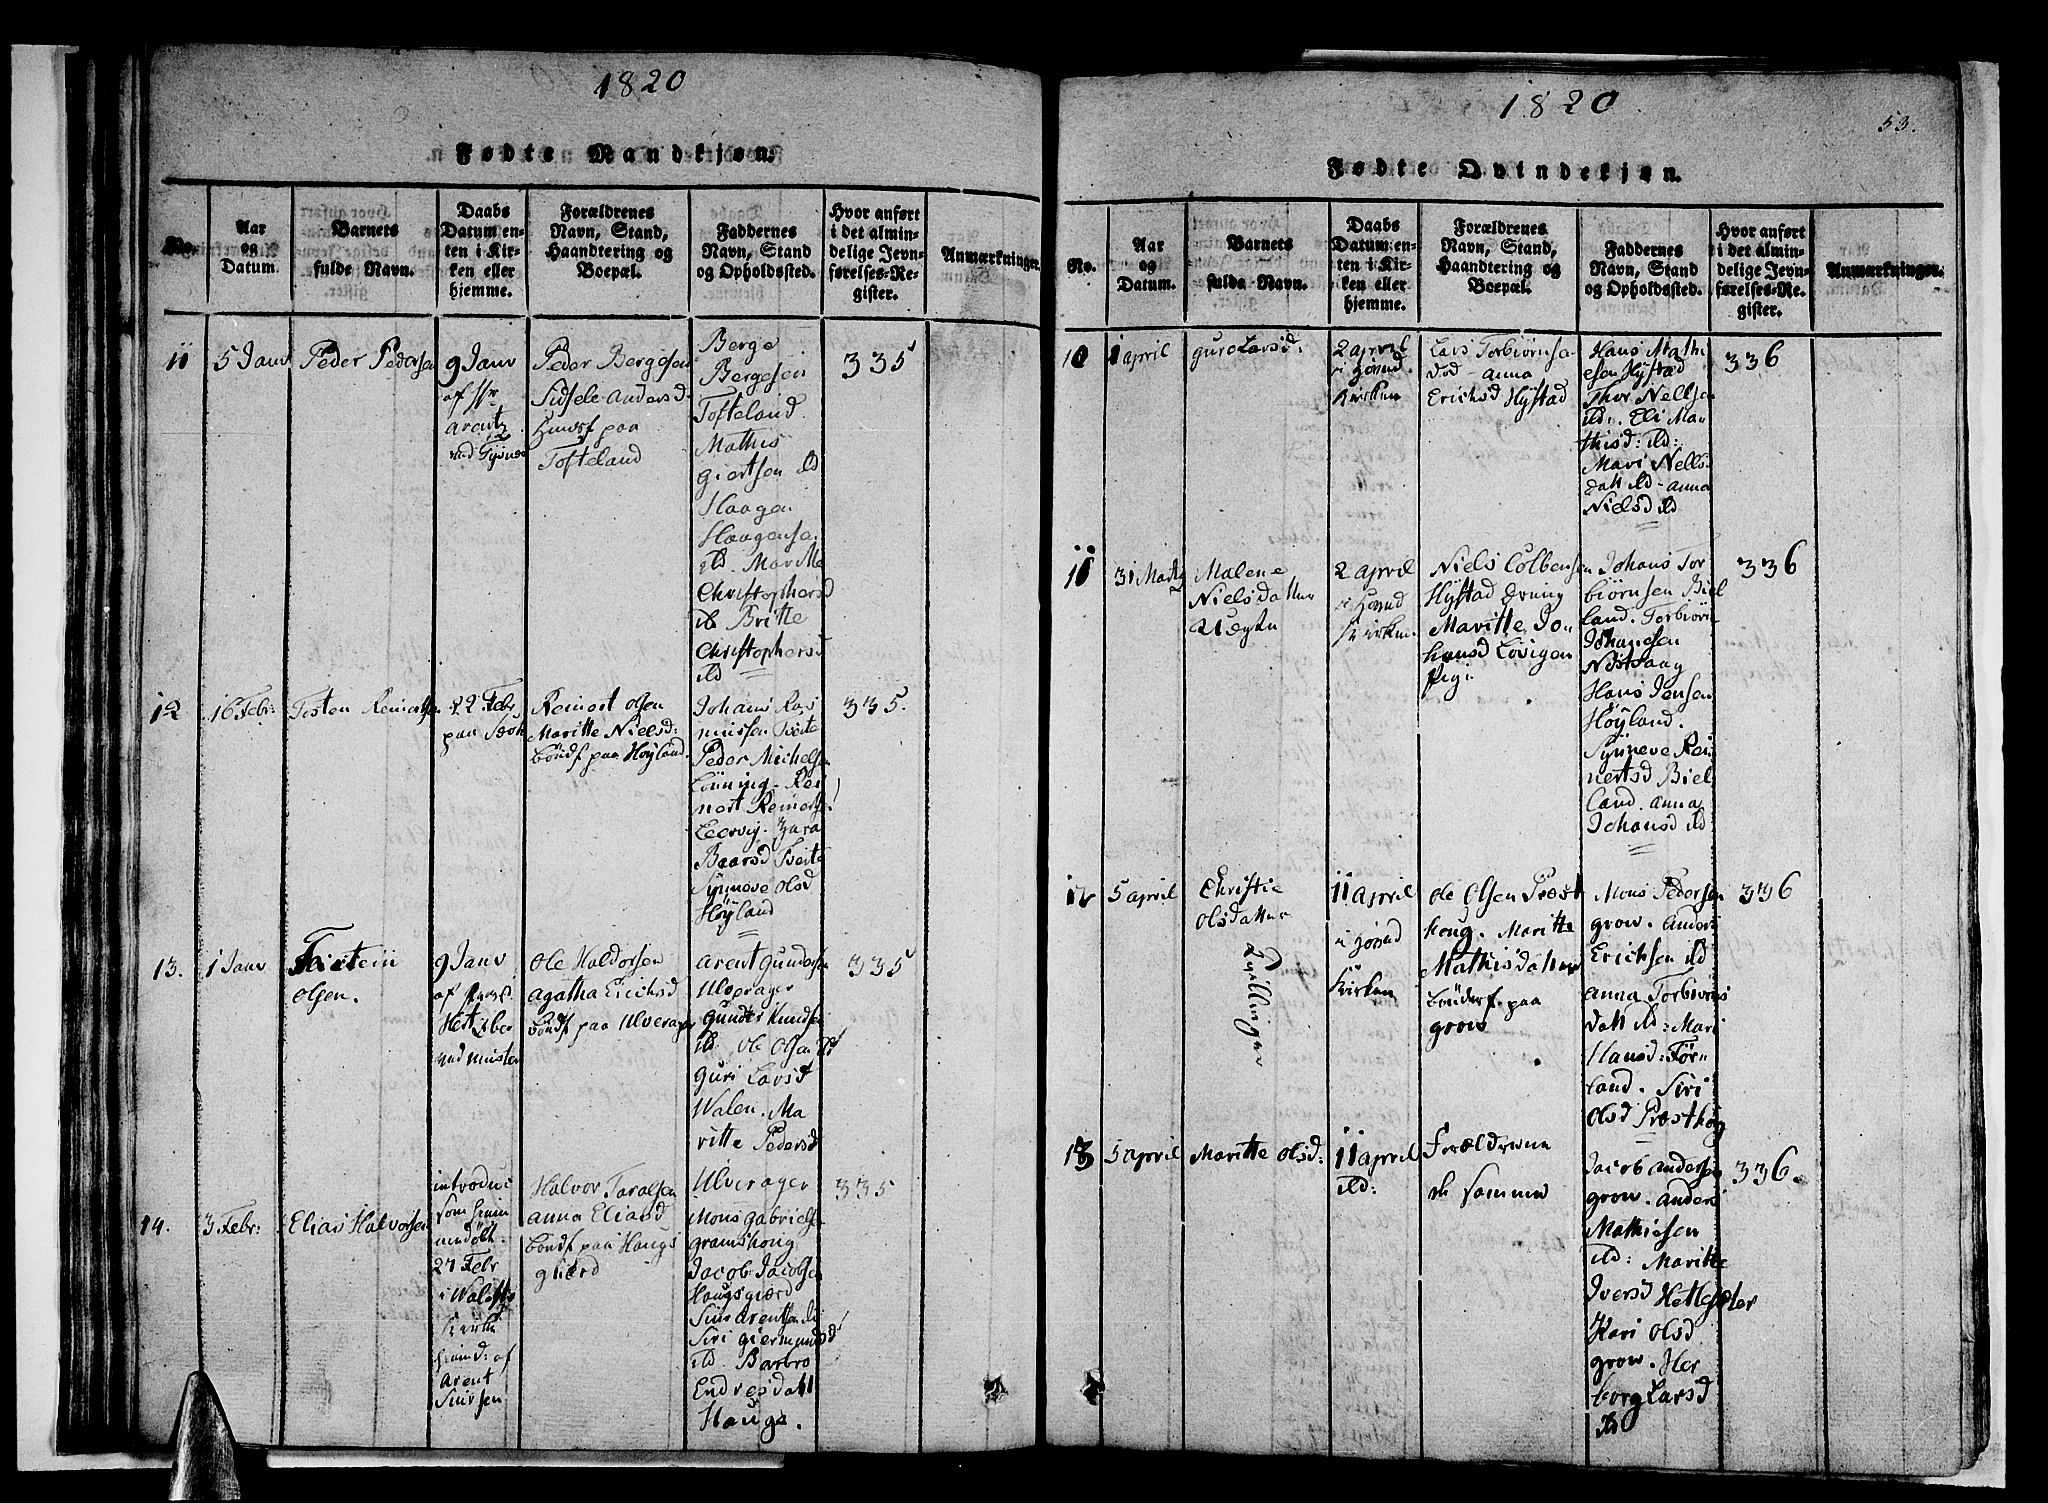 1820
Fødte Mandkjøn.
No.
Aar
og
Datum.
Barnets
fulde Navn.
Daabs
Datum en-
ten i Kir-
ken eller
hjemme.
Forældrenes
Navn, Stand,
Haandtering og
Boepæl.
Faddernes
Navn, Stand
og Opholdssted.
Hvor anført
i det almin-
delige Jevn-
førelses-Re-
gister.
Anmærkninger.
11
5 Janv
Peder Pedersen
9 Janv
af Hr
Arentz
ved Tysnes
Peder Bergesen
Sidsele Andersd
Huusf paa
Tofteland
Berge
Bergesen
Tofteland.
Mathis
giertsen ild
Haagen
Haagensen
ild. Maritte
Christophersd
ib Britte
Christophersd
ild
335
12
16 Febr:
Tosten Reinertsen
22 Febr
paa
Reinert Olsen
Maritte Nielsd:
bondf paa Høyland.
Johans Ras
mussen Tveite
Peder Michelsen
Lønning. Rei
nert Reinertsen
Leervig. Zara
Baarsd Tveite
Synneve Olsd
Høyland
335.
13.
1 Janv
Tostein
Olsen.
9 Janv
af
Hertzber
ved
Ole Haldorsen
Agatha Erichsd
bondf paa Ulverager
Arent Gundersen
Ulverager
Gunder Knudsen
ild. Ole Olsen ild
Guri Larsd
Walen. Ma
ritte Pedersd
Ulverager
335
14.
3 Febr:
Elias Halvorsen
introduc
som hiem
medøbt:
27 Febr
i
Kirke
hiemd: af
Arent
Siursen
Halvor Taralsen
Anna Eliasd
bondf paa Haugs
giærd
Mons Gabrielse
gramshoug
Jacob Jacobsen
Haugsgiærd
Siur Arentsen ild
Siri giermundsd
ild. Barbro
Endresdatt
Hauge.
335
1820
53.
Fødte Qvindekjøn.
No.
Aar
og
Datum.
Barnets
fulde Navn.
Daabs
Datum en-
ten i Kir-
ken eller
hjemme.
Forældrenes
Navn, Stand,
Haandtering og
Boepæl.
Faddernes
Navn, Stand
og Opholdssted.
Hvor anført
i det almin-
delige Jevn-
førelses-Re-
gister.
Anmærkninger.
10
1 April
Guro Larsd:
2 April
i
Kirken
Lars Torbiørnse
Anna
Erichsd Hystad
Hans Mathi
esen Hystad
Thor Nellsen
ild. Eli Mat
thisd: ild:
Mari Nells
datt ild - Anna
Nielsd ild
336
11
31 Marts
Malene
Nielsdatter
Uegte
2 April
i
Kirken
Niels Colbensen
Hystad
Maritte Jo
hansd Løvigen
Pige
Johans Tor
biørnsen Biel
land. Torbiørn
Johansen
Hans Jensen
Høyland.
Synneve Rei
nertsd Biel
land. Anna
Johansd ild
336
12
5 April
Christie
Olsdatter
Tvillinger
11 April
i
Kirken
Ole Olsen Præst
houg. Maritte
Mathisdatter
bønderf. paa
grow
Mons Pedersen
grow. Anders
Erichsen ild
Anna Torbiørns
datt ild: Mari
Hansd: Tør
land. Siri
Olsd Præsthoug
336
13
5 April
Maritte Olsd:
11 April
ild:
Forældrene
de samme
Jacob Andersen
grow. Anders
Mathiesen
ild: Maritte
Iversd Hetlesæter
Kari Olsd
grow. Her
borg Larsd
ib
336.